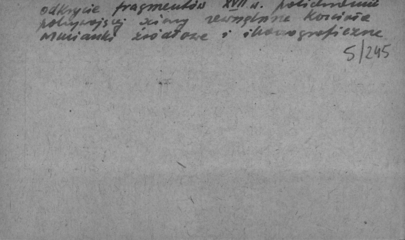 odkrycie fragmentów XVII w. polichromii
pokrywającej ściany zewnętrzne Kościoła
źródłowe i ikonograficzne
S/245